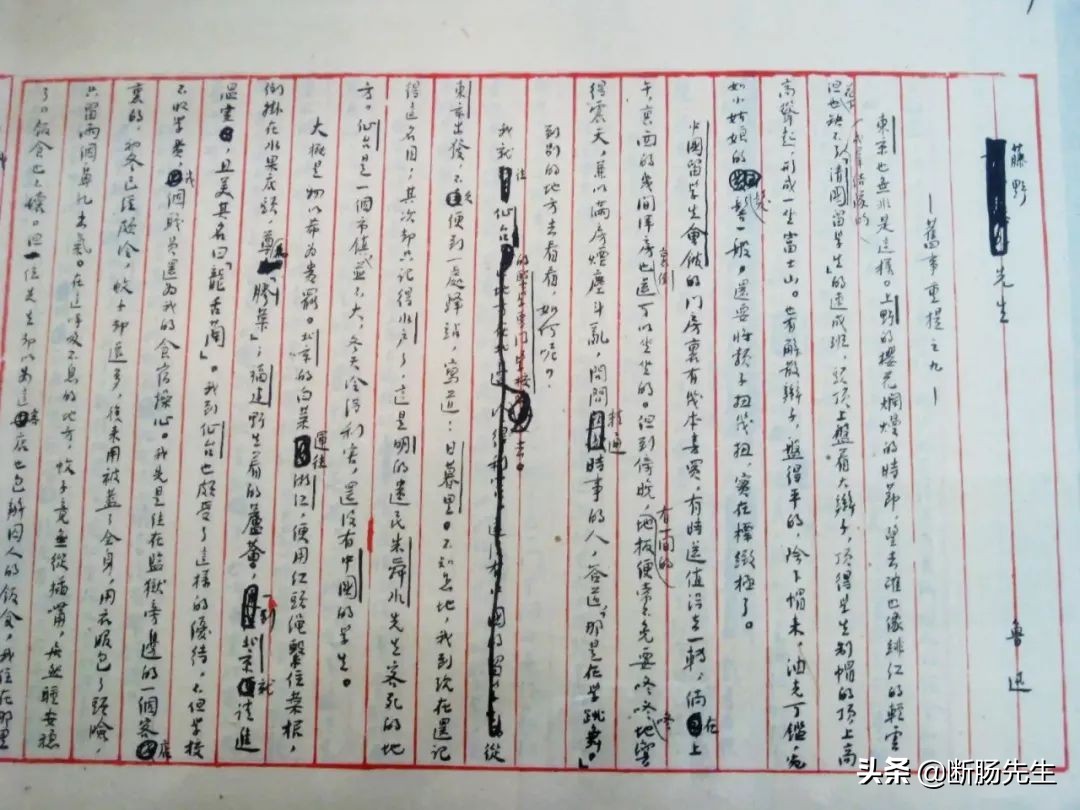 藤野先生
—舊事重提之九—
魯迅
東京也無非是這樣。上野的櫻花爛熳的時節，望去確也像緋紅的輕雲
但花下也缺不了成羣結隊的「清國留學生」的速成班，頭頂上盤着大辮子，頂得學生制帽的頂上高
高聳起，形成一座富士山。也有解散辮子，盤得平的，除下帽來，油光可鑑，宛
如小姑娘的髮髻一般，還要將頸子扭幾扭，實在標緻極了。
中國留學生會館的門房裏有幾本書買，有時還值得去一轉，倘在上
午，裏面的幾間洋房裏倒也還可以坐坐的。但到傍晚，有一間的地板便常不免要咚咚咚地響
得震天，兼以滿房煙塵斗亂，問問精通時事的人，答道，「那是在學跳舞。」
到別的地方去看看，如何呢？
我就往仙台的醫學專門學校去。從
東京出發，不久便到一處驛站，寫道：日暮里。不知怎地，我到現在還記
得這名目，其次却只記得水户了，這是明的遺民朱舜水先生客死的地
方。仙台是一個市鎮，並不大，冬天冷得利害，還沒有中國的學生。
大概是物以希為貴罷。北京的白菜運往浙江，便用紅頭繩繫住菜根，
倒掛在水果店頭，尊為「膠菜」；福建野生着的蘆薈，一到北京就請進
溫室，且美其名曰「龍舌蘭」。我到仙台也頗受了這樣的優待，不但學校
不收學費，幾個職員還為我的食宿操心。我先是住在監獄旁邊的一個客店
裏的，初冬已經頗冷，蚊子却還多，後來用被蓋了全身，用衣服包了頭臉，
只留兩個鼻孔出氣。在這呼吸不息的地方，蚊子竟無從插嘴，居然睡安穩
了。飯食也不壞。但一位先生却以為這客店也包辦囚人的飯食，我住在那里
头条 @断肠先生